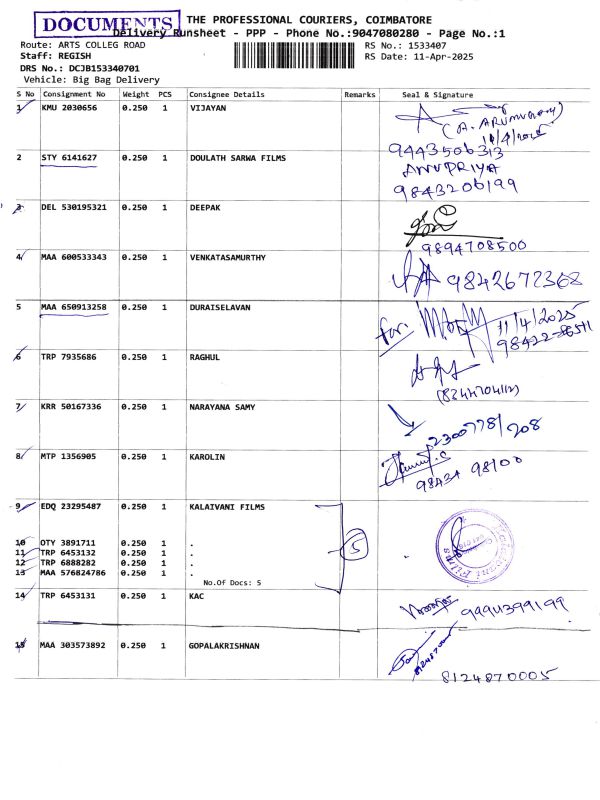 DOCUMENTS
THE PROFESSIONAL COURIERS, COIMBATORE
Delivery Runsheet - PPP - Phone No.:9047080280 - Page No.:1
Route: ARTS COLLEG ROAD
RS No.: 1533407
Staff: REGISH
RS Date: 11-Apr-2025
DRS No.: DCJB153340701
Vehicle: Big Bag Delivery
S No Consignment No Weight PCS Consignee Details Remarks Seal & Signature
1 KMU 2030656 0.250 1 VIJAYAN
(A. ARUMUGAM)
11/4/2025
9443506313
2 STY 6141627 0.250 1 DOULATH SARWA FILMS
ANUPRIYA
9843206199
3 DEL 530195321 0.250 1 DEEPAK
9894708500
4 MAA 600533343 0.250 1 VENKATASAMURTHY
9842672368
5 MAA 650913258 0.250 1 DURAISELAVAN
for: 11/4/2025
6 TRP 7935686 0.250 1 RAGHUL
(8244704112)
7 KRR 50167336 0.250 1 NARAYANA SAMY
8 MTP 1356905 0.250 1 KAROLIN
98434 98100
9 EDQ 23295487 0.250 1 KALAIVANI FILMS
10 OTY 3891711 0.250 1 .
11 TRP 6453132 0.250 1 .
12 TRP 6888282 0.250 1 .
13 MAA 576824786 0.250 1 .
No.Of Docs: 5
5
14 TRP 6453131 0.250 1 KAC
9994399199
15 MAA 303573892 0.250 1 GOPALAKRISHNAN
8124870005